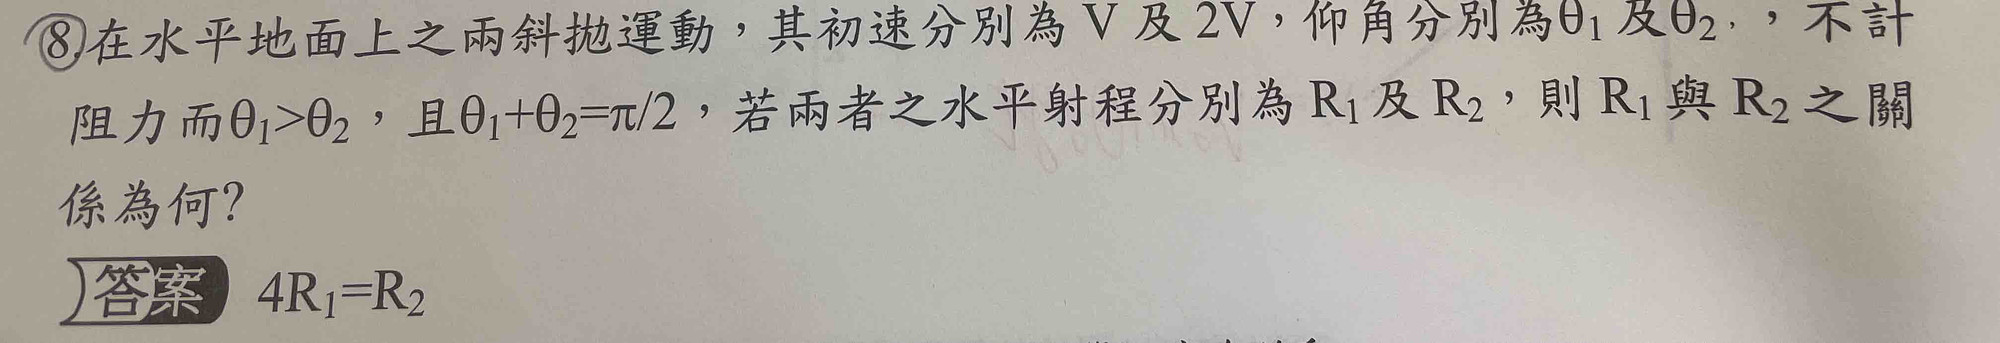 ⑧在水平地面上之兩斜拋運動，其初速分別為 V 及 2V，仰角分別為θ₁及θ₂，不計
阻力而θ₁>θ₂，且θ₁+θ₂=π/2，若兩者之水平射程分別為 R₁及 R₂，則 R₁與 R₂之關
係為何?
答案 4R₁=R₂